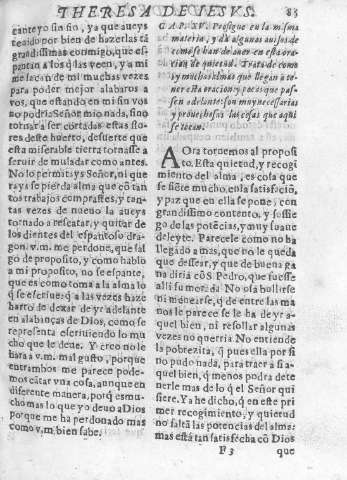 THERESA DE IESVS. 83
cante yo sin fin, ya que aueys
tenido por bien de hazerlas tã
grandissimas conmigo, que es-
pantan a los q̃ las veen, y a mi
me sacan de mi muchas vezes
para poder mejor alabaros a
vos, que estando en mi sin vos
no podria Señor mio nada, sino
tornar a ser cortadas estas flo-
res deste huerto, desuerte que
esta miserable tierra tornasse a
seruir de muladar como antes.
No lo permitays Señor, ni que
rays se pierda alma que cõ tan
tos trabajos comprastes, y tan-
tas vezes de nueuo la aueys
tornado a rescatar, y quitar de
los dientes del espantoso dra-
gon. v.m. me perdone, que sal
go de proposito, y como hablo
a mi proposito, no se espante,
que es como toma a la alma lo
q̃ se escriue: q̃ a las vezes haze
harto de dexar de yr adelante
en alabanças de Dios, como se
representa escriuiendo lo mu
cho que le deue. Y creo no le
hara a v.m. mal gusto, porque
entrambos me parece pode-
mos cãtar vna cosa, aunque en
diferente manera, porq̃ es mu-
cho mas lo que yo deuo a Dios
porque me ha perdonado mas
como v.m. bien sabe.
CAP. XV. Prosigue en la misma
materia, y dà algunos auisos de
como se han de auer en esta ora-
cion de quietud. Trata de como
ay muchas almas que llegan a te-
ner esta oracion y pocas que pas-
sen adelante: son muy necessarias
y prouechosas las cosas que aqui
se tocan.
AOra tornemos al proposi
to. Esta quietud, y recogi
miento del alma, es cosa que
se siẽte mucho, en la satisfaciõ,
y paz que en ella se pone, con
grandissimo contento, y sossie
go de las potẽcias, y muy suaue
deleyte. Parecele como no ha
llegado a mas, que no le queda
que dessear, y que de buena ga
na diria cõ S. Pedro, que fuesse
alli su morada. No osa bullirse
ni menearse, q̃ de entre las ma
nos le parece se le ha de yr a-
quel bien, ni resollar algunas
vezes no querria. No entiende
la pobrezita, q̃ pues ella por si
no pudo nada, para traer a si a-
quel bien, q̃ menos podra dete
nerle mas de lo q̃ el Señor qui
siere. Ya he dicho, q̃ en este pri
mer recogimiento, y quietud
no faltã las potencias del alma:
mas està tan satisfecha cõ Dios
F 3 que